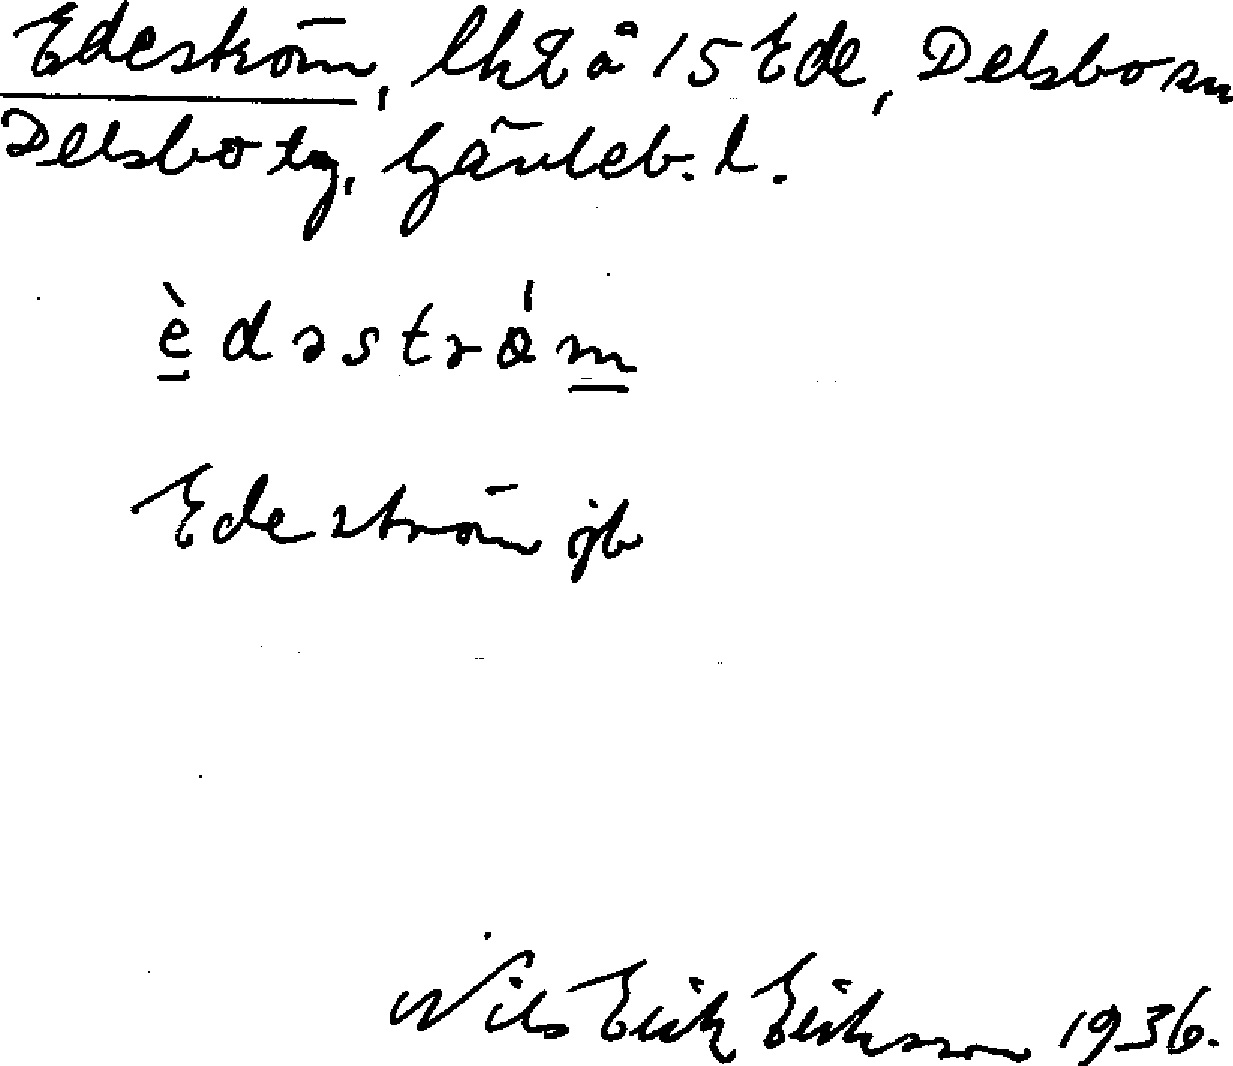 Edeström, lht å 15 Ede, Delsbo sn
Delsbo tg, Gävleb. l.
è d ə s t r ö́ m
Edeström jb
Nils Erik Eriksson 1936.